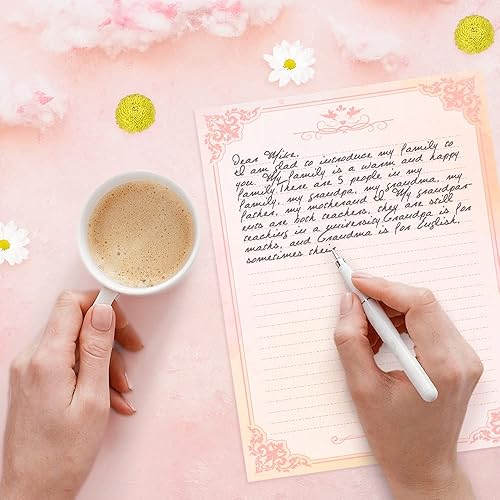 Dear Mike,
I am glad to introduce my family to
you. My family is a warm and happy
family. There are 5 people in my
family, my grandpa, my grandma, my
father, my mother and I. My grandpar-
ents are both teachers, they are still
teaching in a university Grandpa is for
maths, and Grandma is for English,
sometimes their